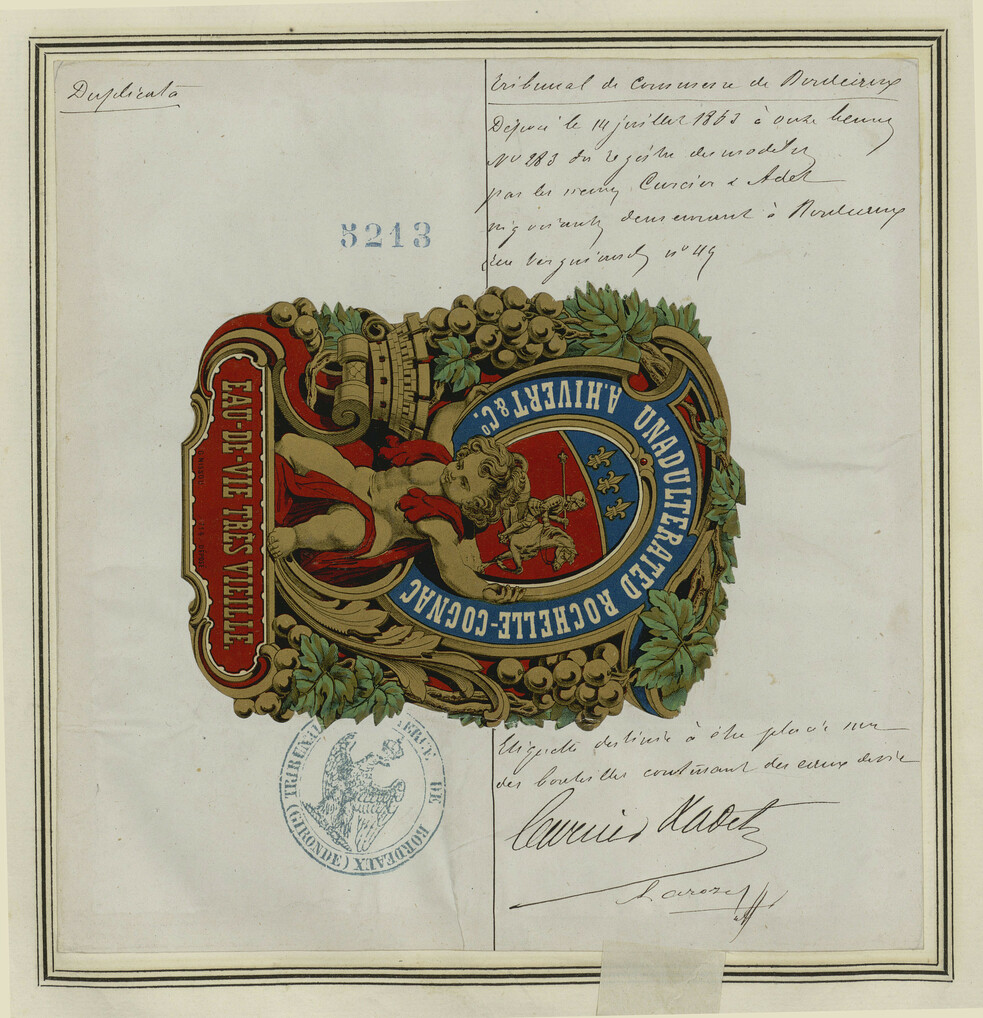 Duplicata
Tribunal de Commerce de Bordeaux
Déposé le 14 juillet 1863 à onze heures
No 283 du registre des modèles
par les sieurs Curcier & Adet
négociants demeurant à Bordeaux
rue no 49
5213
A. HIVERT & Co.
UNADULTERATED ROCHELLE-COGNAC
EAU-DE-VIE TRÈS VIEILLE.
Etiquette destinée à être placée sur
des bouteilles contenant des eaux de vie
Curcier & Adet
TRIBUNAL DE COMMERCE DE BORDEAUX (GIRONDE)